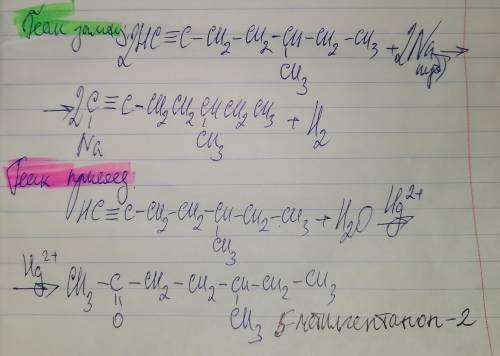 Реак замещ
2HC≡C-CH2-CH2-CH-CH2-CH3 + 2Na →
CH3
→ 2C≡C-CH2CH2CHCH2CH3 + H2
Na CH3
Реак присоед
HC≡C-CH2-CH2-CH-CH2-CH3 + H2O Hg2+ →
CH3
Hg2+ → CH3-C-CH2-CH2-CH-CH2-CH3
O CH3 5-метилгептанон-2